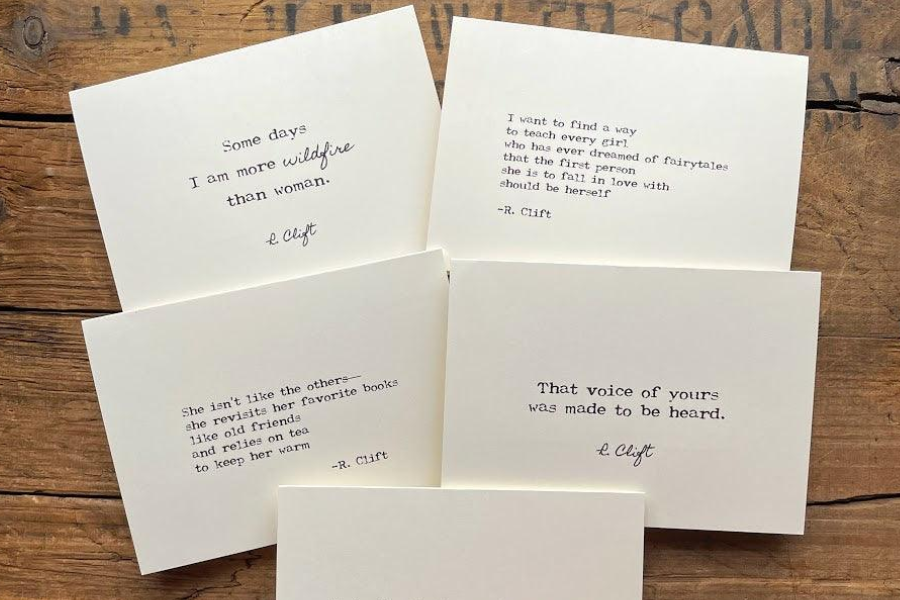 Some days
I am more wildfire
than woman.
R. Clift
I want to find a way
to teach every girl
who has ever dreamed of fairytales
that the first person
she is to fall in love with
should be herself
-R. Clift
She isn't like the others—
she revisits her favorite books
like old friends
and relies on tea
to keep her warm
-R. Clift
That voice of yours
was made to be heard.
R. Clift